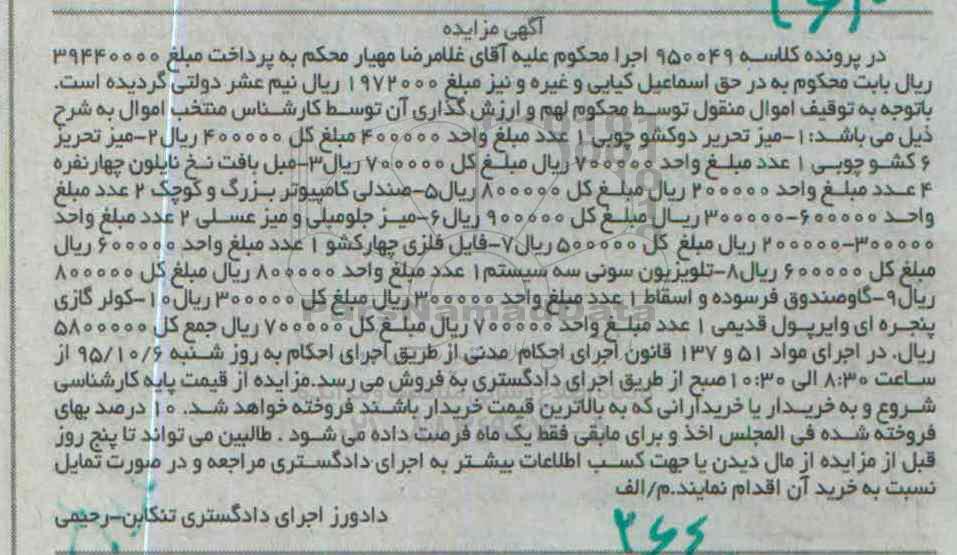 آگهی مزایده
در پرونده کلاسه ۹۵۰۰۴۹ اجرا محکوم علیه آقای غلامرضا مهیار محکم به پرداخت مبلغ ۳۹۴۴۰۰۰۰
ریال بابت محکوم به در حق اسماعیل کیایی و غیره و نیز مبلغ ۱۹۷۲۰۰۰ ریال نیم عشر دولتی گردیده است.
باتوجه به توقیف اموال منقول توسط محکوم لهم و ارزش گذاری آن توسط کارشناس منتخب اموال به شرح
ذیل می باشد:۱-میز تحریر دوکشو چوبی ۱ عدد مبلغ واحد ۴۰۰۰۰۰ مبلغ کل ۴۰۰۰۰۰ ریال۲-میز تحریز
۶ کشو چوبی ۱ عدد مبلغ واحد ۷۰۰۰۰۰ ریال مبلغ کل ۷۰۰۰۰۰ ریال۳-مبل بافت نخ نایلون چهارنفره
۴ عدد مبلغ واحد ۲۰۰۰۰۰ ریال مبلغ کل ۸۰۰۰۰۰ ریال۵-صندلی کامپیوتر بزرگ و کوچک ۲ عدد مبلغ
واحد ۶۰۰۰۰۰-۳۰۰۰۰۰ ریال مبلغ کل ۹۰۰۰۰۰ ریال۶-میز جلومبلی و میز عسلی ۲ عدد مبلغ واحد
۳۰۰۰۰۰-۲۰۰۰۰۰ ریال مبلغ کل ۵۰۰۰۰۰ ریال۷-فایل فلزی چهارکشو ۱ عدد مبلغ واحد ۶۰۰۰۰۰ ریال
مبلغ کل ۶۰۰۰۰۰ ریال۸-تلویزیون سونی سه سیستم۱ عدد مبلغ واحد ۸۰۰۰۰۰ ریال مبلغ کل ۸۰۰۰۰۰
ریال۹-گاوصندوق فرسوده و اسقاط ۱ عدد مبلغ واحد ۳۰۰۰۰۰ ریال مبلغ کل ۳۰۰۰۰۰ ریال۱۰-کولر گازی
پنجره ای وایرپول قدیمی ۱ عدد مبلغ واحد ۷۰۰۰۰۰ ریال مبلغ کل ۷۰۰۰۰۰ ریال جمع کل ۵۸۰۰۰۰۰
ریال. در اجرای مواد ۵۱ و ۱۳۷ قانون اجرای احکام مدنی از طریق اجرای احکام به روز شنبه ۹۵/۱۰/۶ از
ساعت ۸:۳۰ الی ۱۰:۳۰صبح از طریق اجرای دادگستری به فروش می رسد.مزایده از قیمت پایه کارشناسی
شروع و به خریدار یا خریدارانی که به بالاترین قیمت خریدار باشند فروخته خواهد شد. ۱۰ درصد بهای
فروخته شده فی المجلس اخذ و برای مابقی فقط یک ماه فرصت داده می شود . طالبین می تواند تا پنج روز
قبل از مزایده از مال دیدن یا جهت کسب اطلاعات بیشتر به اجرای دادگستری مراجعه و در صورت تمایل
نسبت به خرید آن اقدام نمایند.م/الف
دادورز اجرای دادگستری تنکابن-رحیمی
ParsNamadData